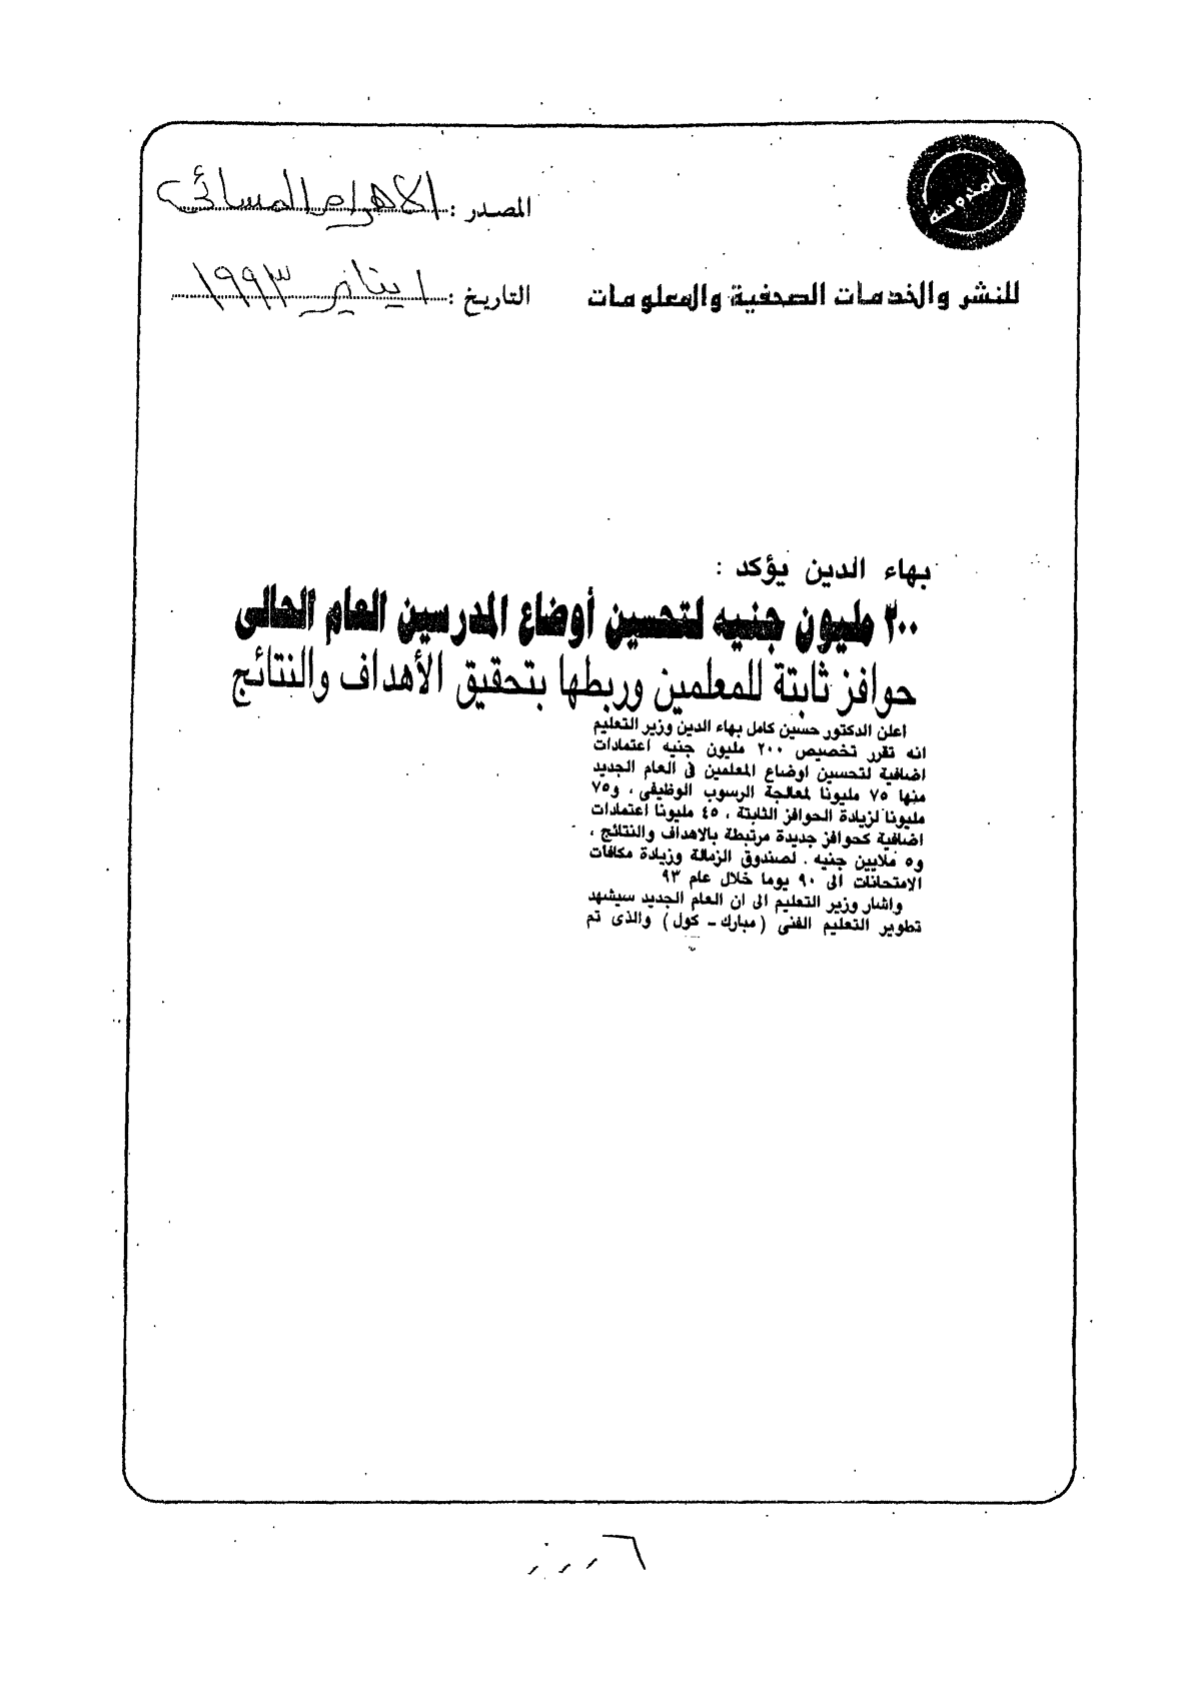 المحروسة
المصدر : الأهرام المسائى
للنشر والخدمات الصحفية والمعلومات
التاريخ : ١ يناير ١٩٩٣
بهاء الدين يؤكد :
٢٠٠ مليون جنيه لتحسين أوضاع المدرسين العام الحالى
حوافز ثابتة للمعلمين وربطها بتحقيق الأهداف والنتائج
اعلن الدكتور حسين كامل بهاء الدين وزير التعليم
انه تقرر تخصيص ٢٠٠ مليون جنيه اعتمادات
اضافية لتحسين اوضاع المعلمين فى العام الجديد
منها ٧٥ مليونا لمعالجة الرسوب الوظيفى ، و٧٥
مليونا لزيادة الحوافز الثابتة ، ٤٥ مليونا اعتمادات
اضافية كحوافز جديدة مرتبطة بالاهداف والنتائج ،
و٥ ملايين جنيه . لصندوق الزمالة وزيادة مكافات
الامتحانات الى ٩٠ يوما خلال عام ٩٣
واشار وزير التعليم الى ان العام الجديد سيشهد
تطوير التعليم الفنى (مبارك - كول) والذى تم